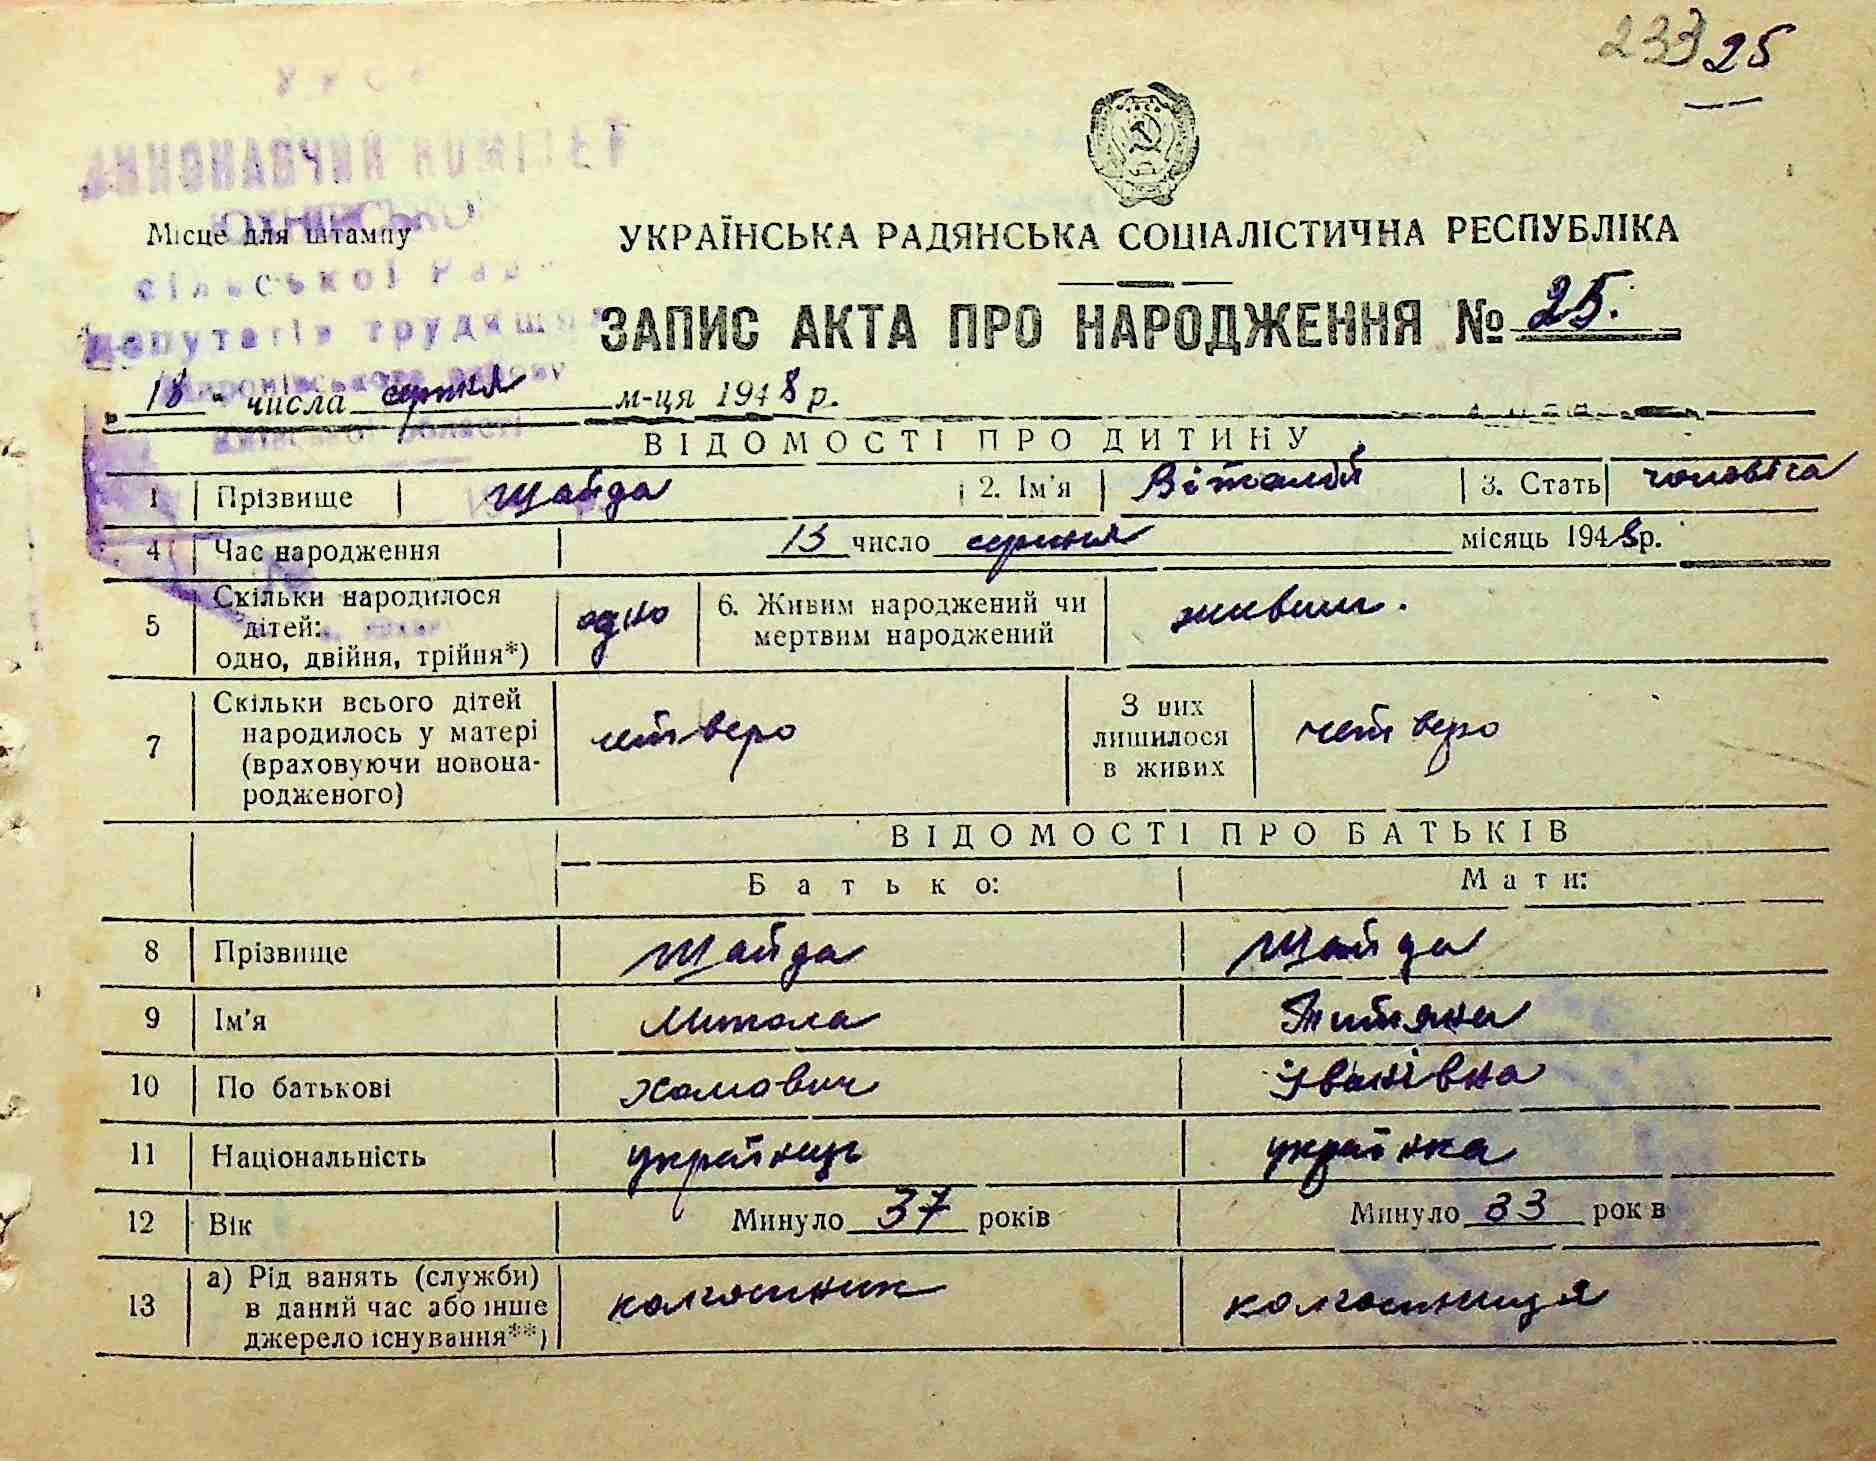 233 25
УРСР
ВИКОНАВЧИЙ КОМІТЕТ
Місце для штампу
сільської Ради
депутатів трудящих
Миронівського району
Київської області
УКРАЇНСЬКА РАДЯНСЬКА СОЦІАЛІСТИЧНА РЕСПУБЛІКА
ЗАПИС АКТА ПРО НАРОДЖЕННЯ № 25.
„18“ числа серпня м-ця 1948 р.
ВІДОМОСТІ ПРО ДИТИНУ
1 Прізвище Шайда 2. Ім'я Віталій 3. Стать чоловіча
4 Час народження 13 число серпня місяць 1948 р.
5 Скільки народилося дітей: одно, двійня, трійня*) одно 6. Живим народжений чи мертвим народжений живим.
7 Скільки всього дітей народилось у матері (враховуючи новонародженого) четверо З них лишилося в живих четверо
ВІДОМОСТІ ПРО БАТЬКІВ
Батько: Мати:
8 Прізвище Шайда Шайда
9 Ім'я Микола Титяна
10 По батькові Хомович Іванівна
11 Національність українець українка
12 Вік Минуло 37 років Минуло 33 років
13 а) Рід занять (служби) в даний час або інше джерело існування**) колгосник колгосниця